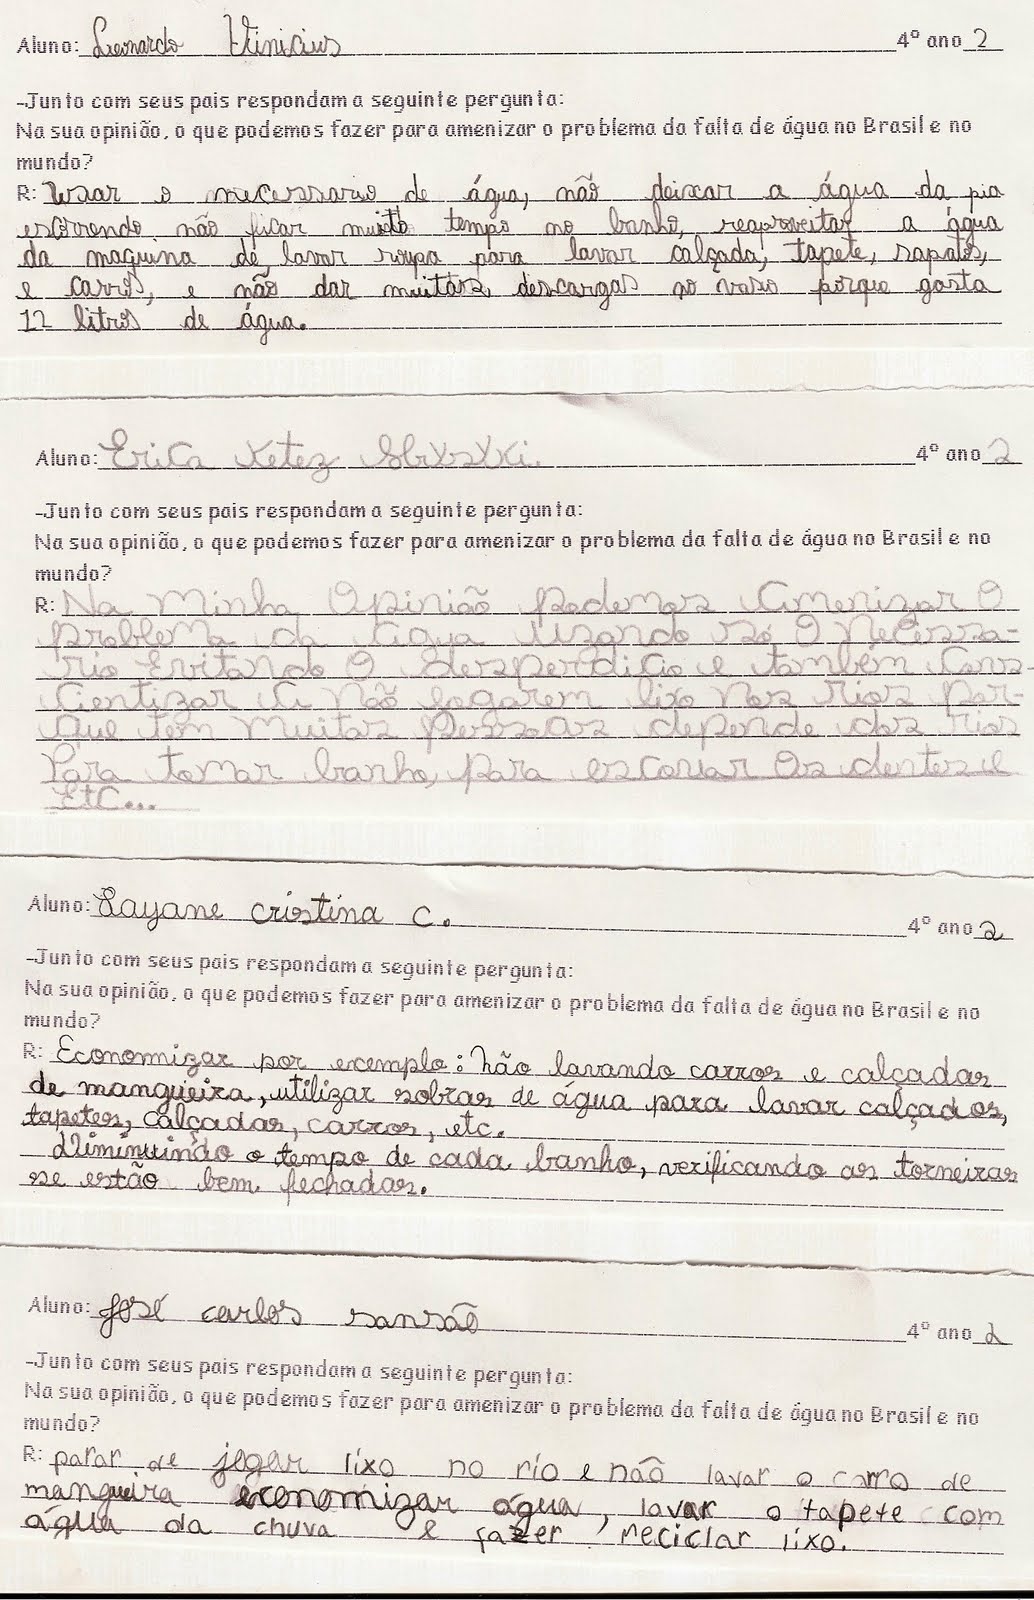 Aluno: Leonardo Vinicius 4º ano 2
-Junto com seus pais respondam a seguinte pergunta:
Na sua opinião, o que podemos fazer para amenizar o problema da falta de água no Brasil e no
mundo?
R: Usar o necessario de água, não deixar a água da pia
escorrendo não ficar muito tempo no banho, reaproveitar a água
da maquina de lavar roupa para lavar calçada, tapete, sapatos,
e carros, e não dar muitas descargas no vaso porque gasta
12 litros de água.
Aluno: Erica Ketez 4º ano 2
-Junto com seus pais respondam a seguinte pergunta:
Na sua opinião, o que podemos fazer para amenizar o problema da falta de água no Brasil e no
mundo?
R: Na Minha Opinião podemos Amenizar O
problema da Água Uzando só O Necessa-
rio Evitando O desperdicio e também Cons-
Cientizar A Não jogarem lixo Nos Rios Por-
Que tem Muitas Pessoas depende dos rios
Para tomar banho, para escovar Os dentes e
Etc...
Aluno: Layane cristina C. 4º ano 2
-Junto com seus pais respondam a seguinte pergunta:
Na sua opinião, o que podemos fazer para amenizar o problema da falta de água no Brasil e no
mundo?
R: Economizar por exemplo: não lavando carros e calçadas
de mangueira, utilizar sobras de água para lavar calçados,
tapetes, calçadas, carros, etc.
Diminuindo o tempo de cada banho, verificando as torneiras
se estão bem fechadas.
Aluno: José carlos sansão 4º ano 2
-Junto com seus pais respondam a seguinte pergunta:
Na sua opinião, o que podemos fazer para amenizar o problema da falta de água no Brasil e no
mundo?
R: parar de jogar lixo no rio e não lavar o carro de
mangueira economizar água, lavar o tapete com
água da chuva e fazer reciclar lixo.